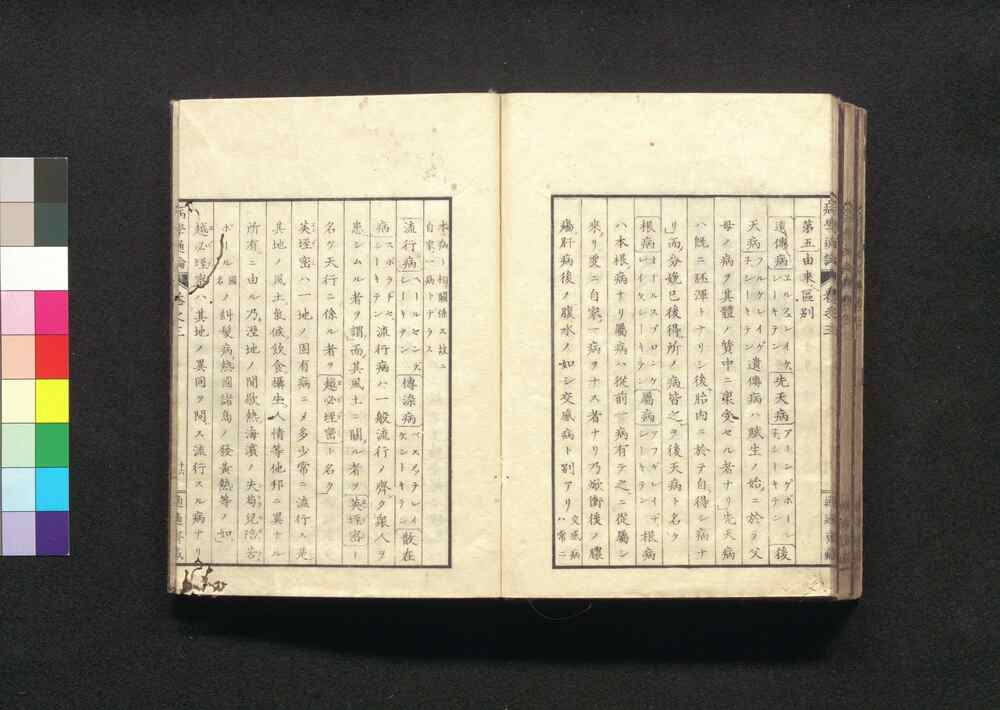 第五由來區別
遺傳病エルフレイケシーキテン先天病アーンゲボールレ子シーキテン後
天病フルケレイゲシーキテン遺傳病ハ賦生ノ始ニ於テ父
母ノ病ヲ其體ノ質中ニ稟受セル者ナリ先天病
ハ既ニ胚渾トナリシ後胎内ニ於テ自得シ病ナ
リ而分娩已後得所ノ病皆之ヲ後天病ト名ク
根病オールスプロンケレイキシーキテン屬病アフゲレイデシーキテン根病
ハ本根病ナリ屬病ハ從前一病有テ之ニ從屬シ
來リ更ニ自家一病ヲナス者ナリ乃焮衝後ノ膿
瘍肝病後ノ腹水ノ如シ交感病ト別アリ交感病ハ常ニ
本病ト相關係ス故ニ自家一病トナラス
流行病ヘールセンデシーキテン傳染病ベスメッテレイケシーキテン散在
病スポラヂセシーキテン流行病ハ一般流行ノ齊ク衆人ヲ
患シムル者ヲ謂而其風土ニ關ル者ヲ英垤密ー
名ケ天行ニ係ル者ヲ越必垤密ト名ク
英垤密ハ一地ノ固有病ニメ多少常ニ流行ス是
其地ノ風土氣候飲食攝生人情等他邦ニ異ナル
所有ニ由ル乃溼地ノ間歇熱海濱ノ失苟兒陪苦
ポールノ國名糾髮病熱國諸島ノ發黃熱等ノ如
越必垤密ハ其地ノ異同ヲ問ス流行スル病ナリ
病學通論 卷之三